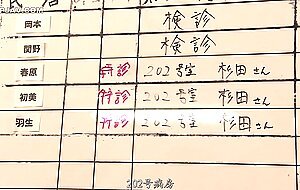 岡本 検診
関野 検診
春原 特診 202号室 杉田さん
初美 特診 202号室 杉田さん
羽生 特診 202号室 杉田さん
202号病房